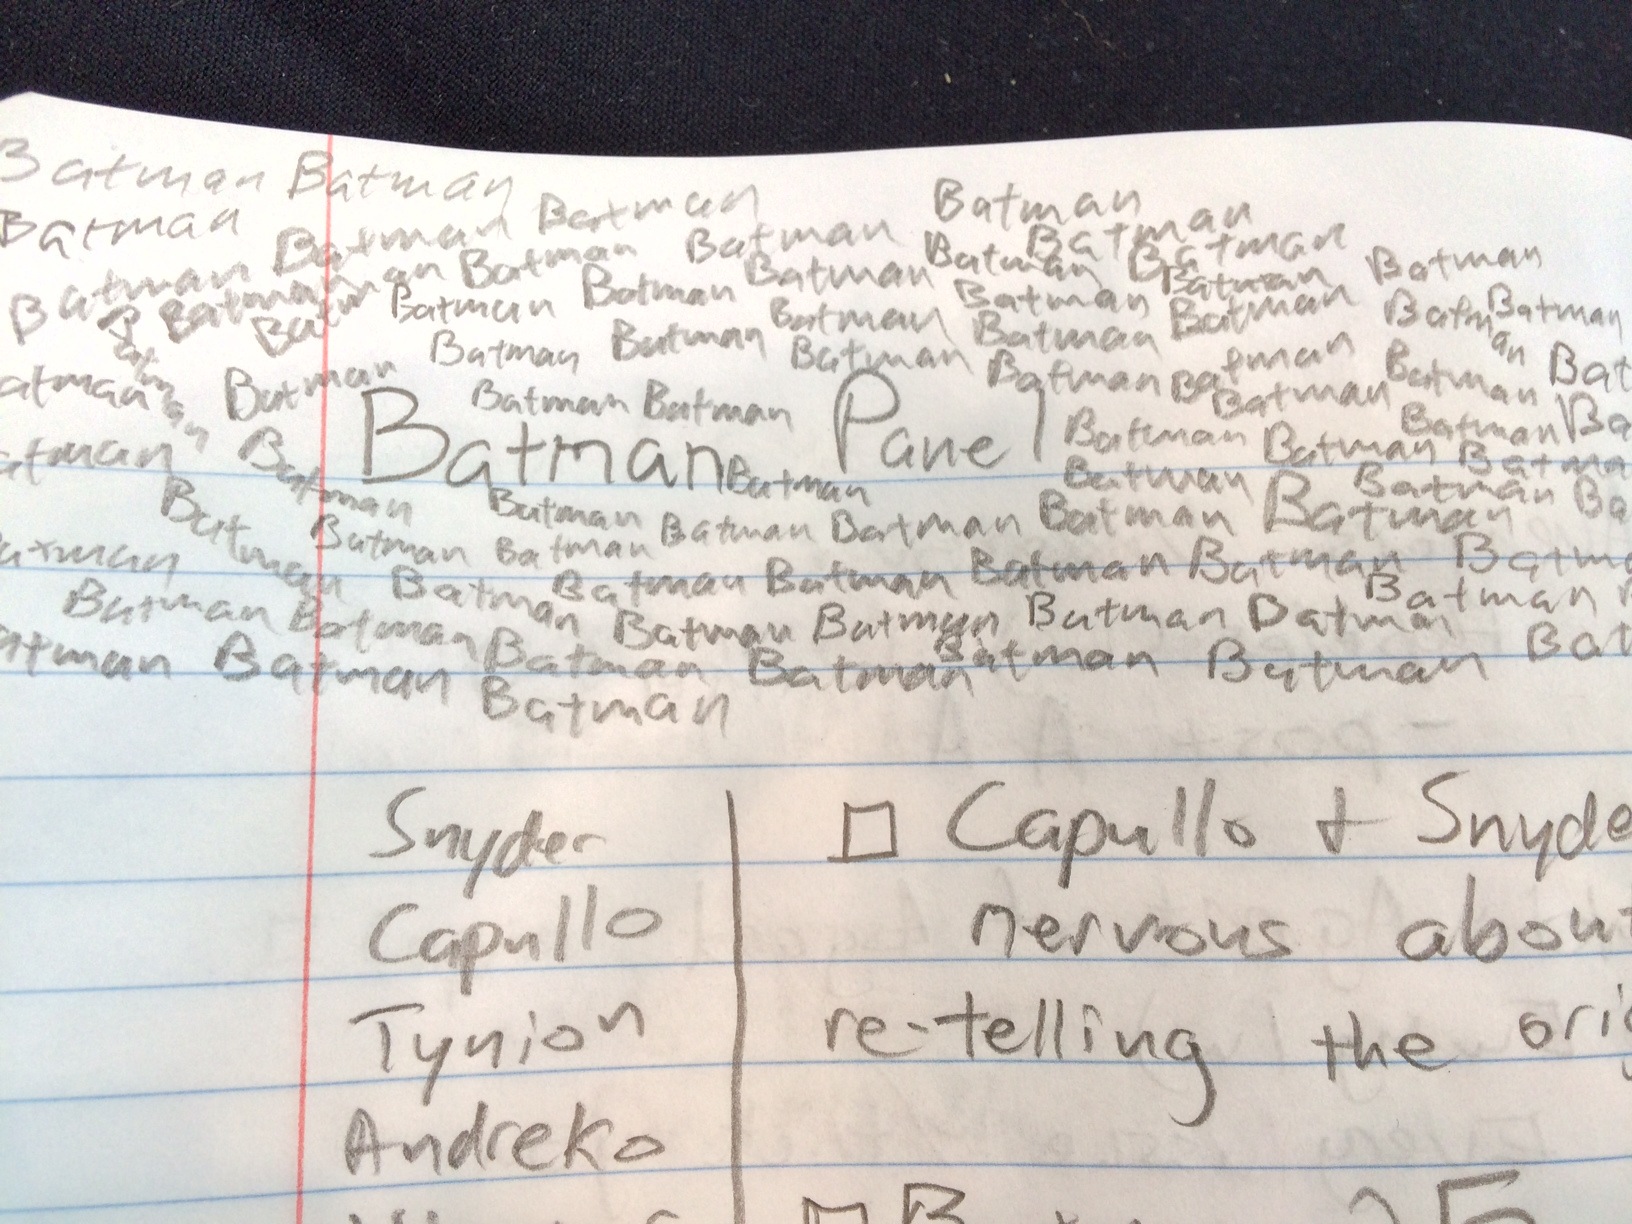 Batman Batman
Batman Batman Batman Batman Batman Batman
Batman Batman Batman Batman Batman Batman Batman Batman
Batman Batman Batman Batman Batman Batman Batman Batman
Batman Batman Batman Batman Batman Batman
atman Batman Batman Batman Batman Batman Batman Bat
Batman Panel
Batman Batman Batman Batman Batman Ba
atman Batman Batman Batman Batman Batma
Batman Batman Batman Batman Batman Batman Batman Ba
Batman Batman Batman
atman Batman Batman Batman Batman Batman Batma
Batman Batman Batman Batman Batman Batman Batman
atman Batman Batman Batman Batman Batman Bat
Batman
Snyder
Capullo
Tynion
Andreko
□ Capullo + Snyde
nervous about
re-telling the orig